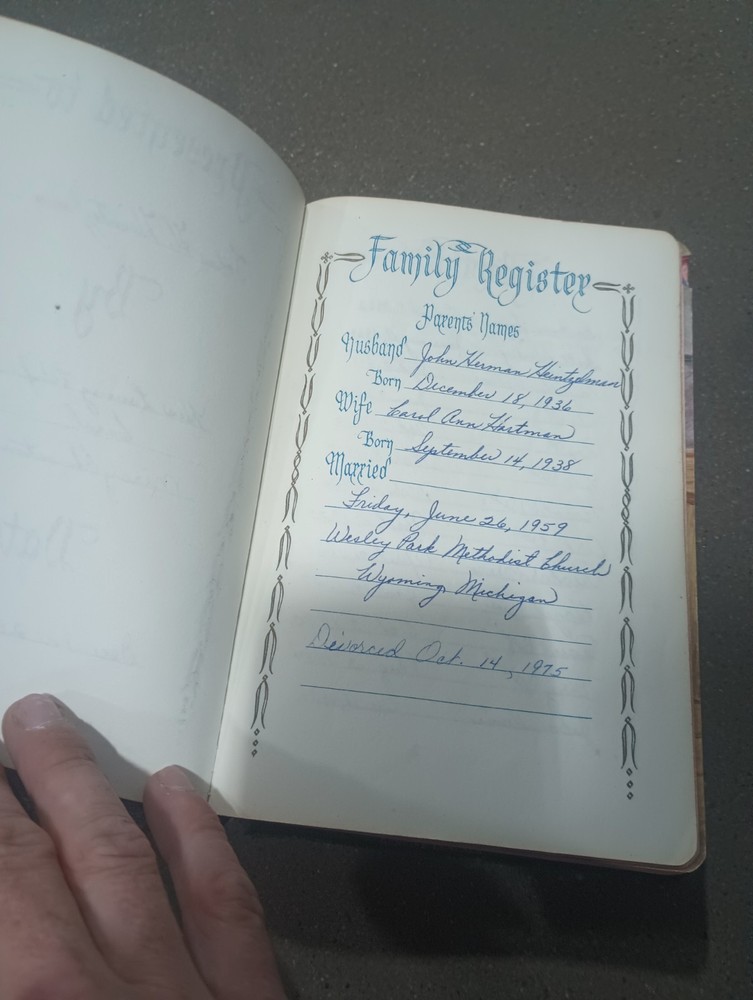 Family Register
Parents' Names
Husband John Herman Heintzelman
Born December 18, 1936
Wife Carol Ann Hartman
Born September 14, 1938
Married
Friday, June 26, 1959
Wesley Park Methodist Church
Wyoming, Michigan
Divorced Oct. 14, 1975